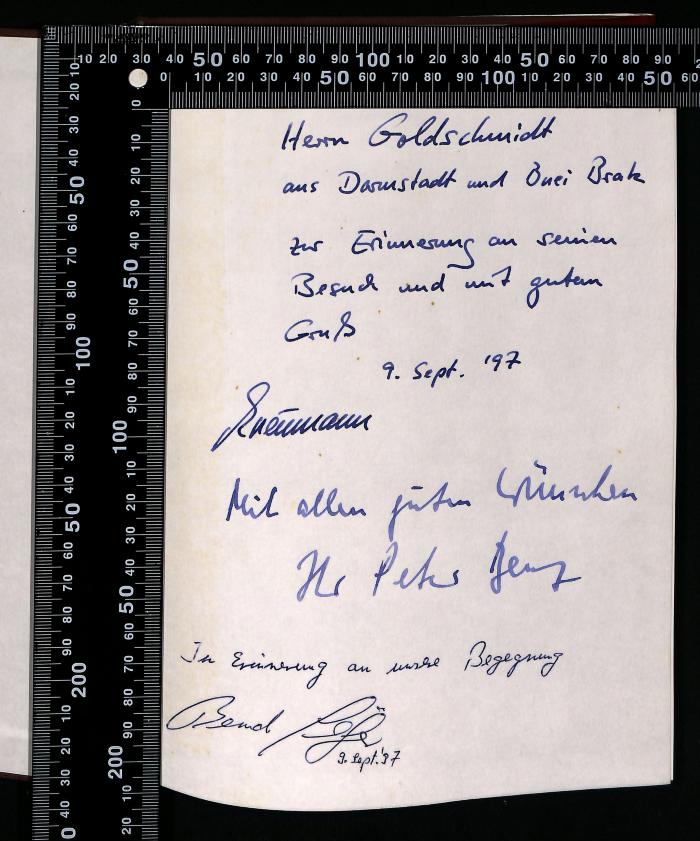 Herrn Goldschmidt
aus Darmstadt und Bnei Brak
zur Erinnerung an seinen
Besuch und mit gutem
Gruß
9. Sept. '97
Mit allen guten Wünschen
Ihr Peter Benz
In Erinnerung an unsere Begegnung
Bernd
9. Sept. '97